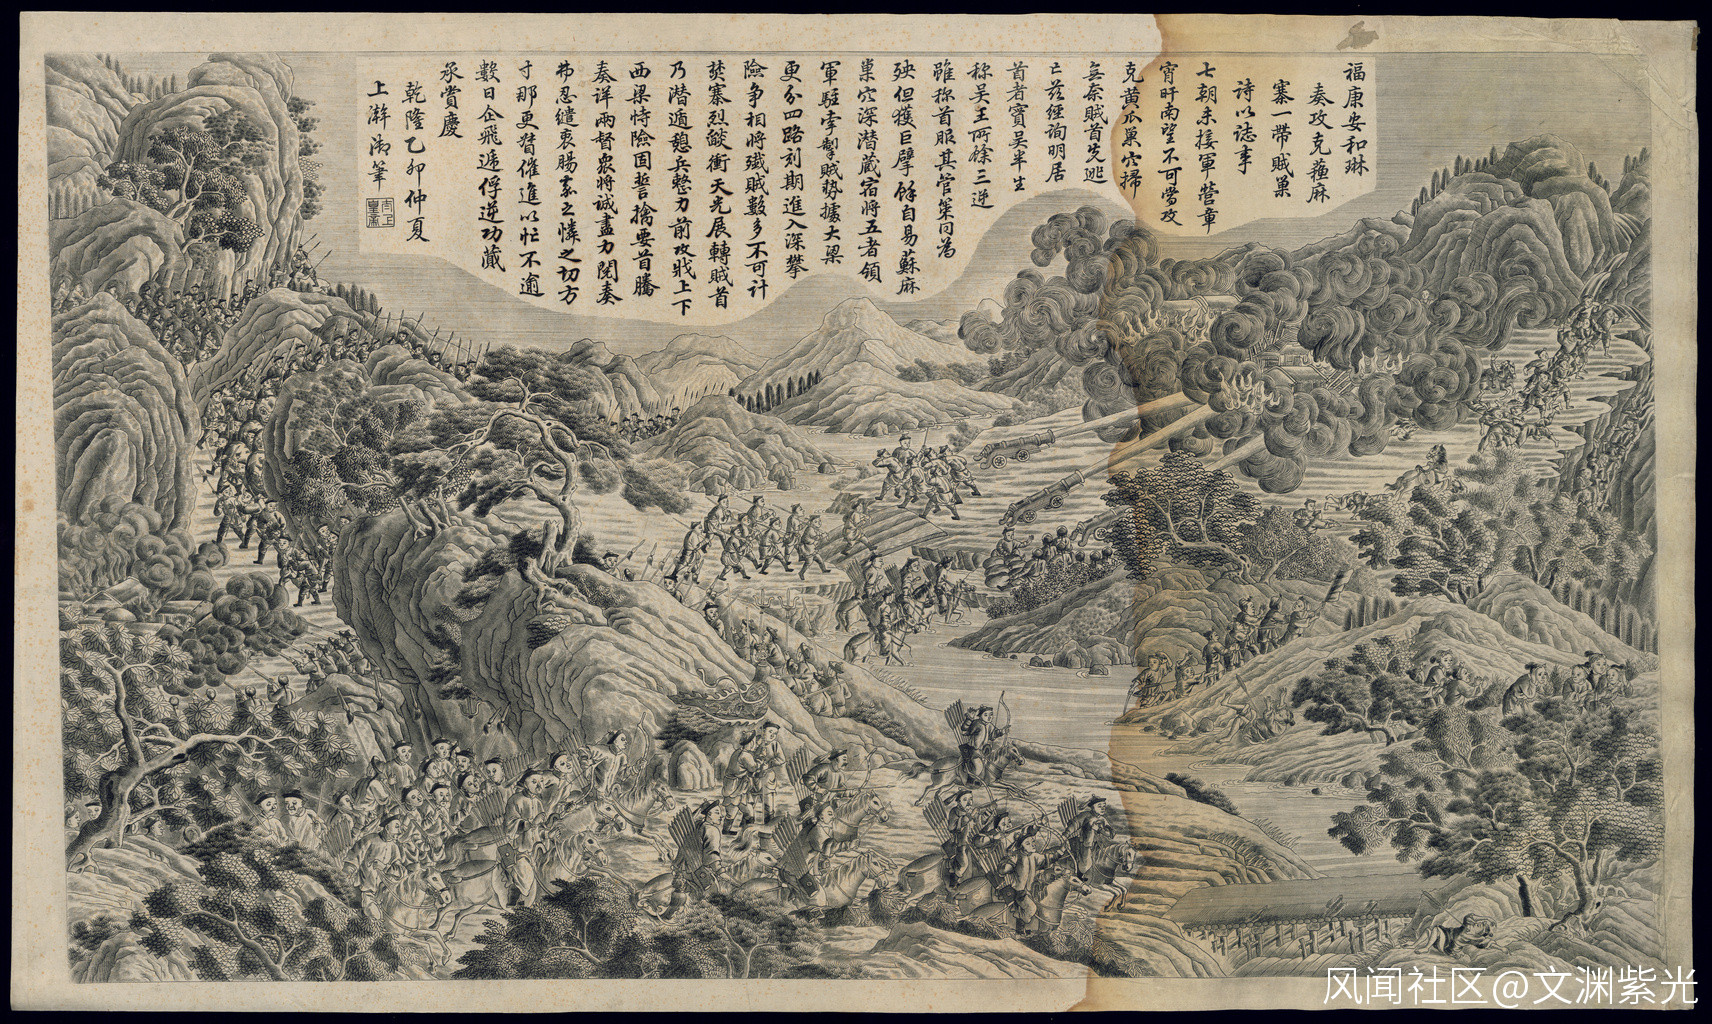 福康安和琳
奏攻克蘓麻
寨一帶賊巢
詩以誌事
七朝未接軍營章
宵旰南望不可當攻
克黃瓜巢穴掃
無奈賊首先逃
亡茲經詢明居
首者實吳半生
称吴王所餘三逆
雖称首服其管築同為
殃但獲巨擘餘自易蘇麻
巢穴深潛藏宿將五者領
軍駐牽掣賊勢據大梁
更分四路刻期進入深攀
險争相將殲賊數多不可計
焚寨烈燄衝天光展轉賊首
乃潛遁憩兵整力前攻戕上下
西梁恃險固誓擒要首騰
奏详兩督衆將誠盡力閱奏
弗忍繾衷腸嘉之憐之切方
寸那更督催進以忙不逾
數日企飛遞俘逆功蕆
承賞慶
乾隆乙卯仲夏
上澣御筆
风闻社区@文渊紫光